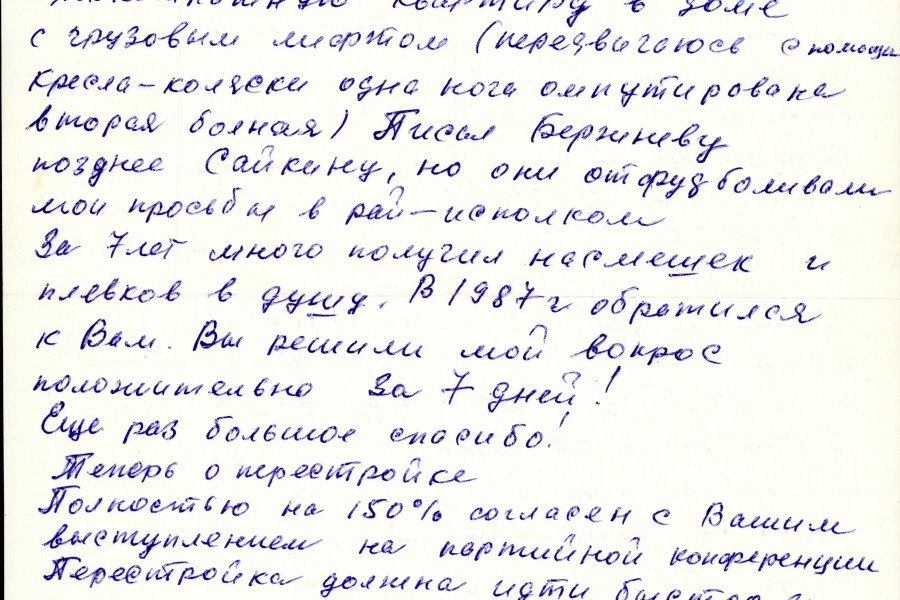 квартиру в доме
с грузовым лифтом (передвигаюсь с помощи
кресла-коляски одна нога ампутирована
вторая больная) Писал Бержневу
позднее Сайкину, но они отфудболивали
мои просьбы в рай-исполком
За 7 лет много получил насмешек и
плевков в душу. В 1987 г обратился
к Вам. Вы решили мой вопрос
положительно за 7 дней!
Еще раз большое спасибо!
Теперь о перестройке
Полностью на 150% согласен с Вашим
выступлением на партийной конференции
Перестройка должна идти быстрее